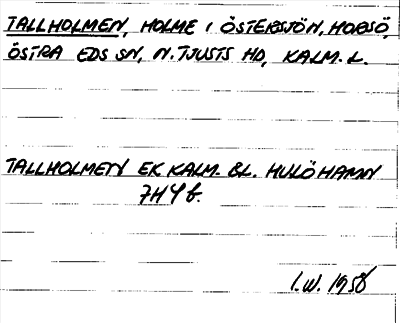 TALLHOLMEN, HOLME I ÖSTERSJÖN, HORSÖ,
ÖSTRA EDS SN, N. TJUSTS HD, KALM. L.
TALLHOLMEN EK KALM. BL. HULÖHAMN
7H 4 f.
I.W. 1958